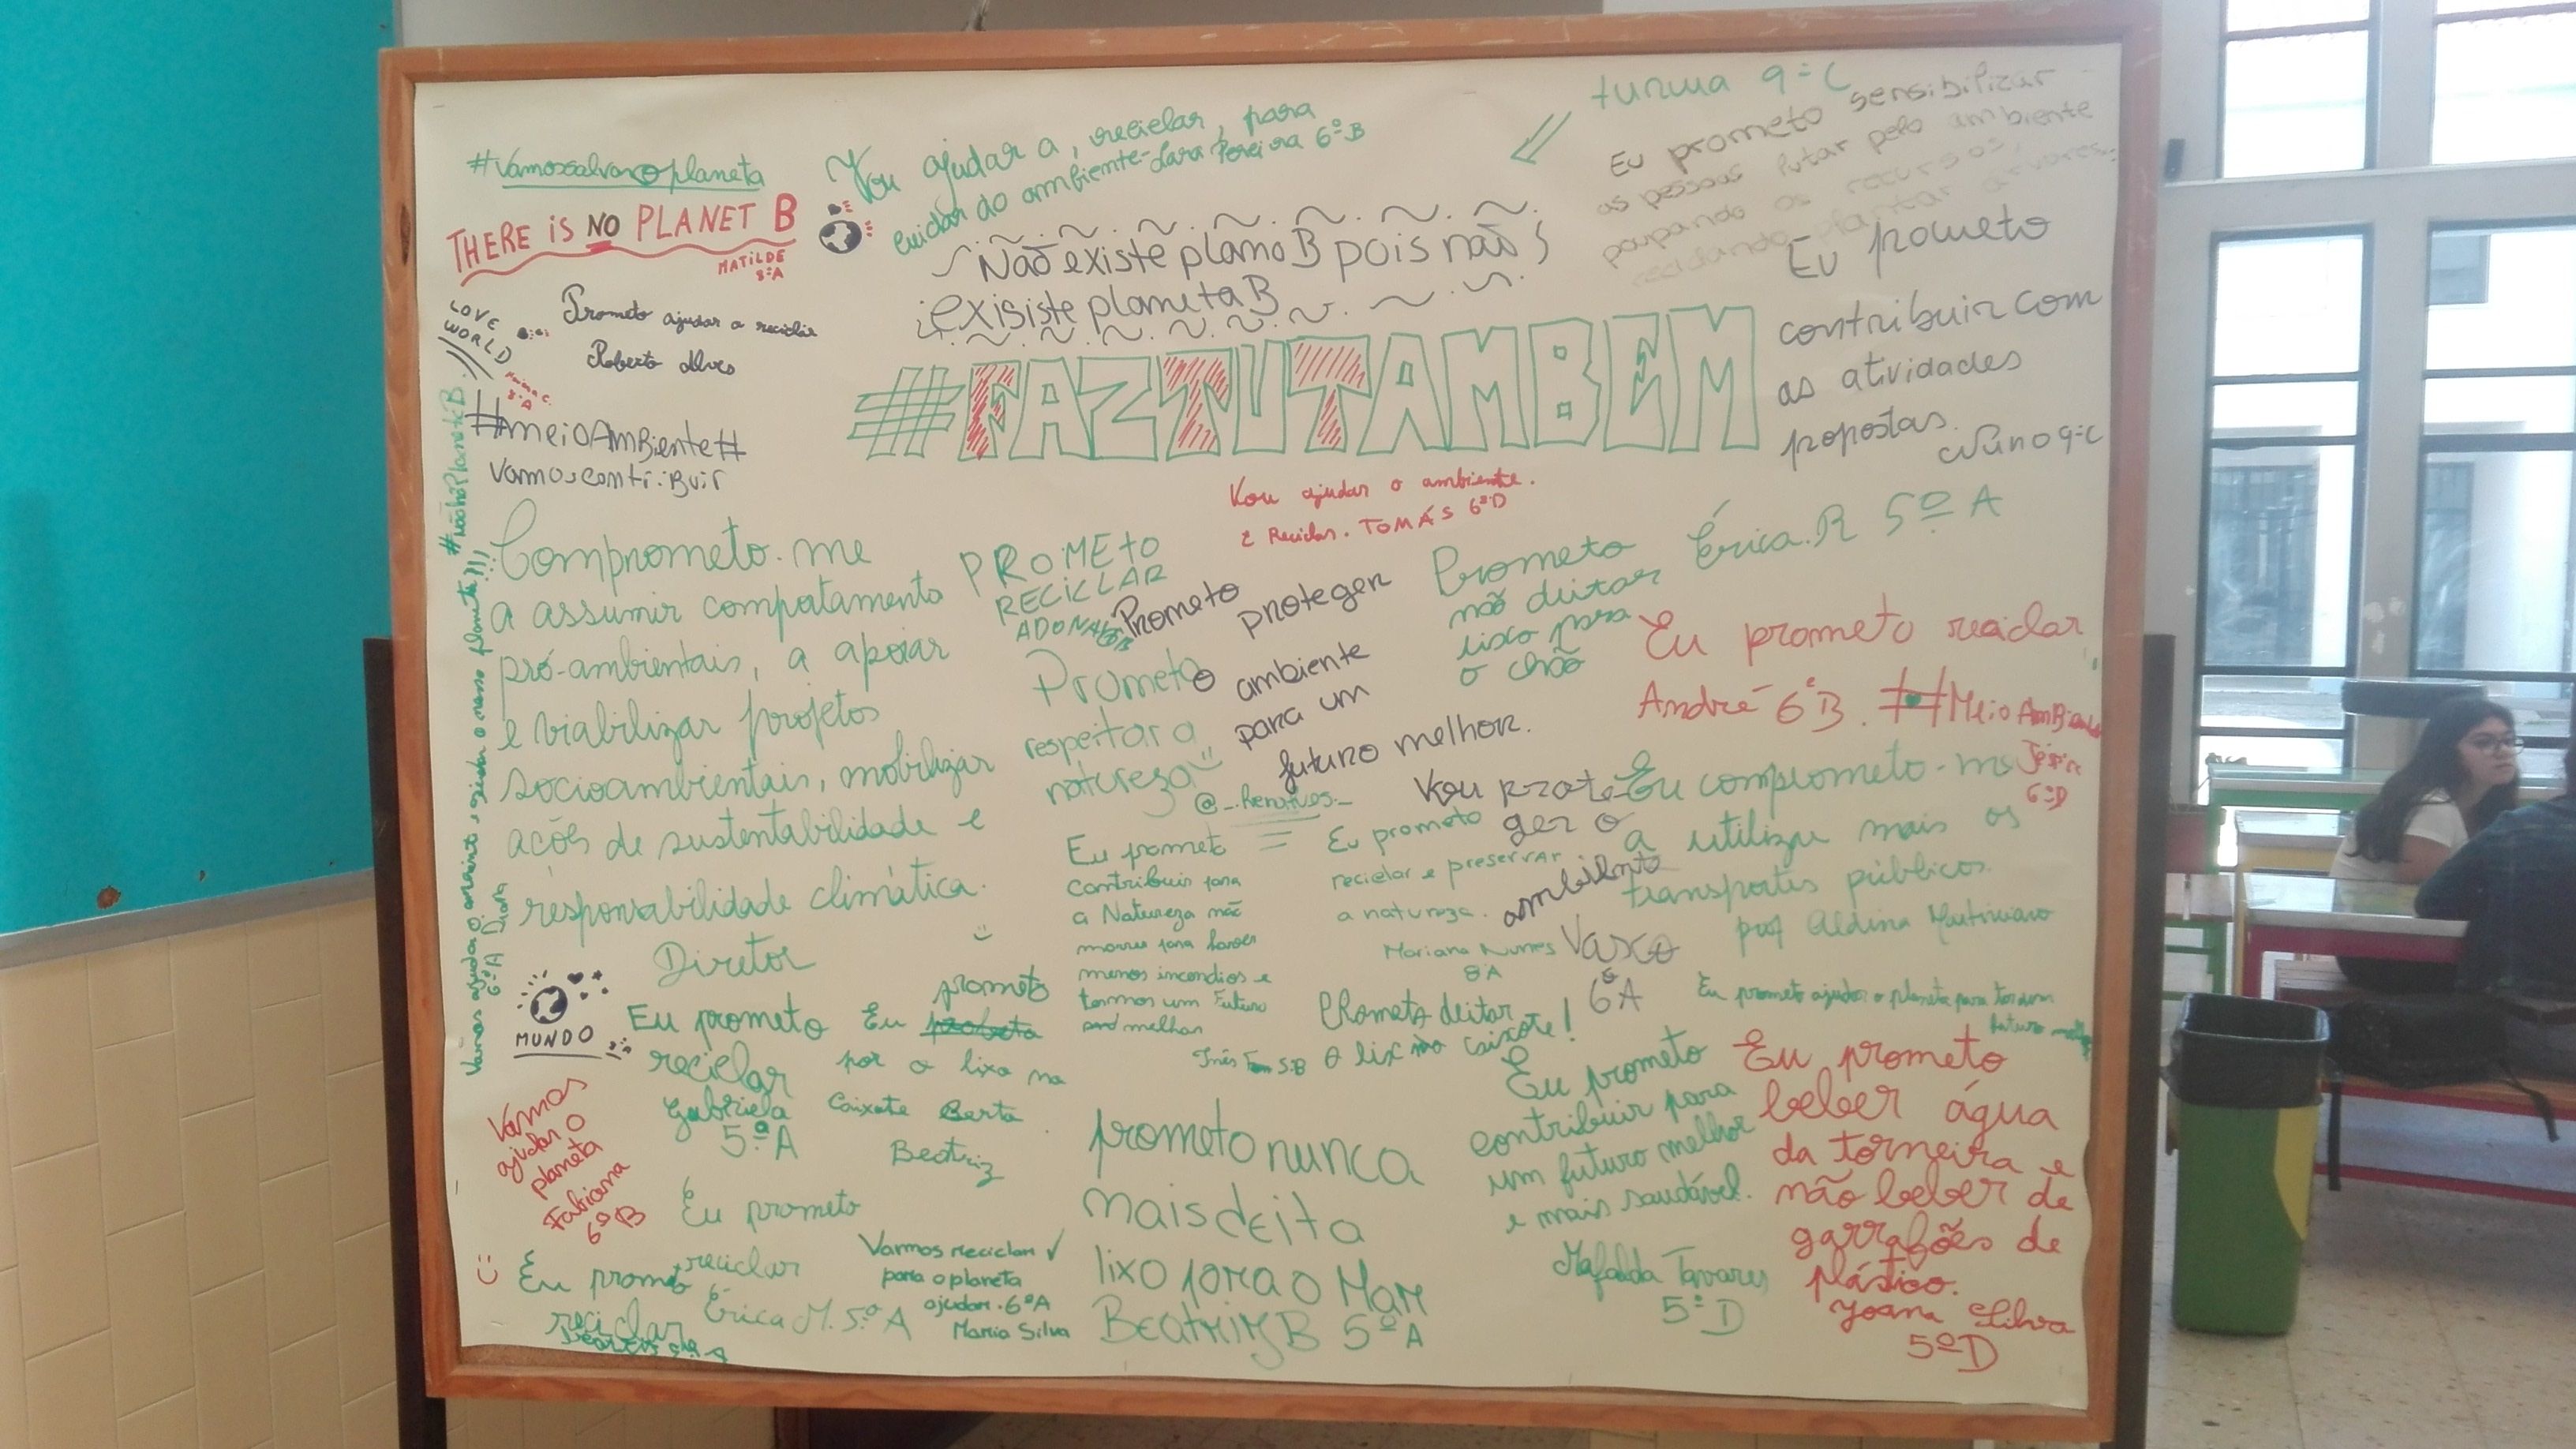 #Vamossalvaroplaneta
THERE iS NO PLANET B
MATiLDE
8ºA
Vou ajudar a, reciclar, para
cuidar do ambiente-Lara Pereira 6ºB
turma 9ºC
Eu prometo sensibilizar
as pessoas lutar pelo ambiente
poupando os recursos,
reciclando plantar árvores.
Não existe plano B pois não
exisiste planeta B
LOVE
WORLD
8ºA
Prometo ajudar a reciclar
Roberto Alves
#meioAmBiente#
Vamoscontribuir
#FAZTUTAMBEM
Eu prometo
contribuir com
as atividades
propostas.
Nuno 9ºC
Vou ajudar o ambiente.
e Reciclar. TOMÁS 6ºD
#NãoháPlanetaB
Vamos ajudar o ambiente e cuidar o nosso planeta!!!
6ºA Diana
Comprometo-me
a assumir comportamento
pró-ambientais, a apoiar
e viabilizar projetos
socioambientais, mobilizar
ações de sustentabilidade e
responsabilidade climática.
Diretor
PROMETO
RECICLAR
Prometo proteger
o ambiente
para um
futuro melhor.
Prometo
respeitar a
natureza
Prometo
não deitar
lixo para
o chão
Érica.R 5ºA
Eu prometo reciclar
André 6ºB. #MeioAmBiente
6ºD
Vou prote-
ger o
ambiente
Vasco
6ºA
Eu comprometo-me
a utilizar mais os
transportes públicos.
prof Aldina
Eu prometo
contribuir para
a Natureza não
morrer para haver
menos incendios e
termos um Futuro
melhor
Inês 5ºB
Eu prometo
reciclar e preservar
a natureza.
Mariana Nunes
8ºA
Prometo deitar
o lixo no caixote!
Eu prometo ajudar o planeta para ter um
futuro melhor
MUNDO
Eu prometo
reciclar
Gabriela
5ºA
Eu probeta prometo
por o lixo no
Caixote Berta
Beatriz
Vamos
ajudar o
planeta
Fabiana
6ºB
Eu prometo
reciclar
Érica M. 5ºA
Eu prometo
reciclar
Vamos reciclar
para o planeta
ajudar. 6ºA
Maria Silva
prometo nunca
mais deita
lixo para o Mar
Beatriz B 5ºA
Eu prometo
contribuir para
um futuro melhor
e mais saudável.
Mafalda Tavares
5ºD
Eu prometo
beber água
da torneira e
não beber de
garrafões de
plástico.
Joana Silva
5ºD